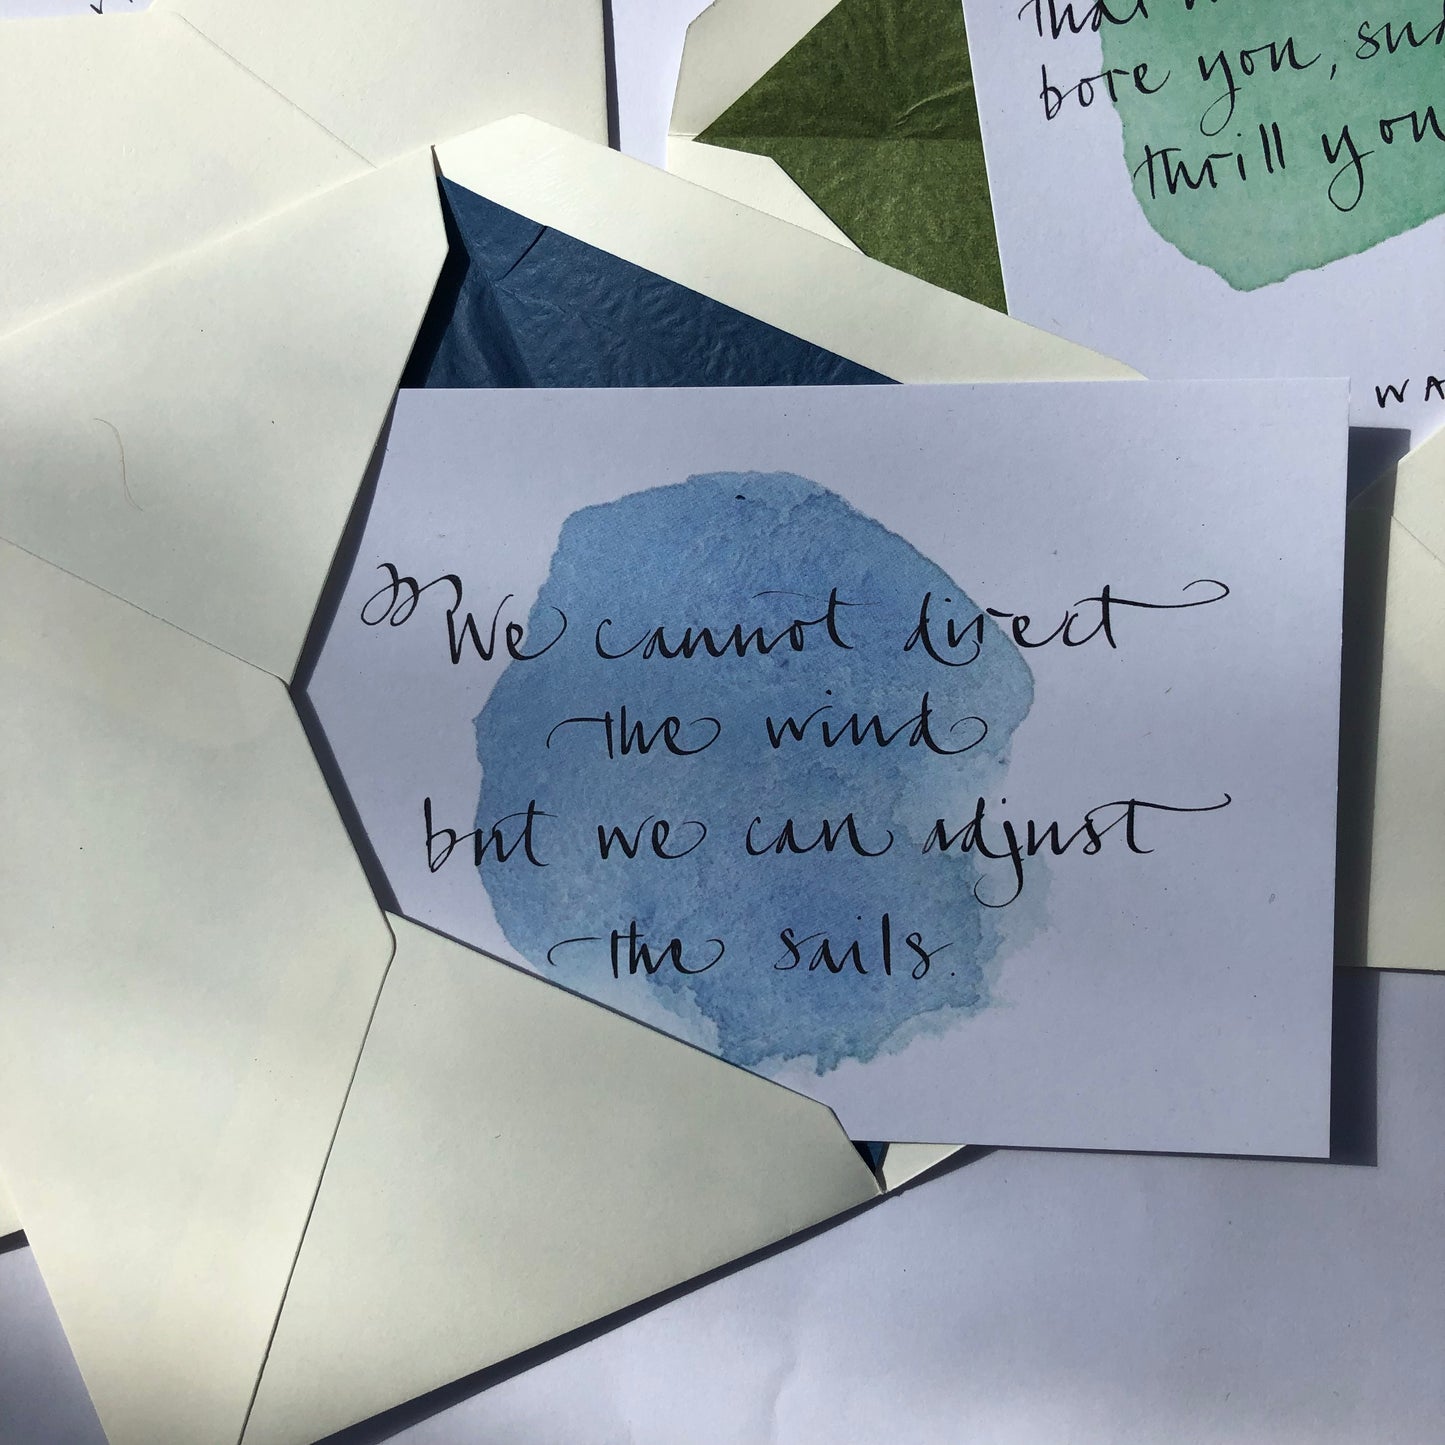 bore you,
thrill you
"We cannot direct
the wind
but we can adjust
the sails.